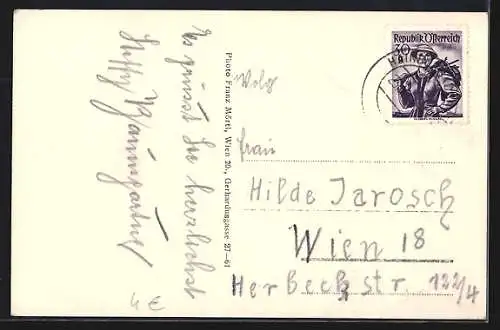 Es grüsst Sie herzlichst
Steffy Baumgartner
4 €
Photo Franz Mörtl, Wien 20., Gerhardusgasse 27–61
Republik Österreich
30
HAIN
Wolg
Frau
Hilde Jarosch
Wien 18
Herbeckstr. 122/4